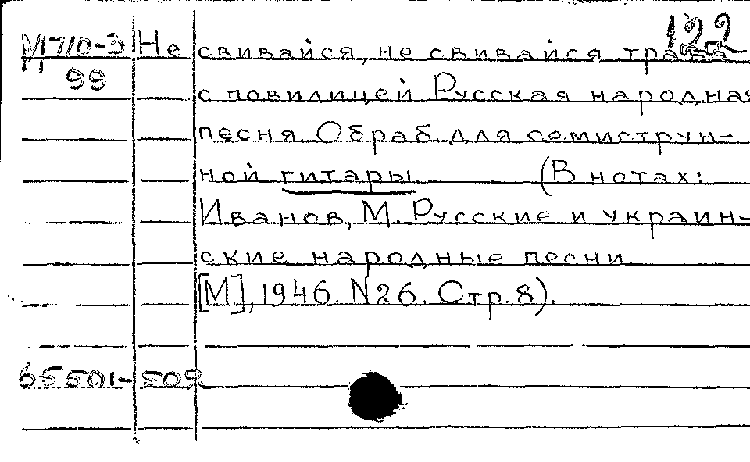 122
М 710-3 Не свивайся, не свивайся трава
99
с повилицей Русская народная
песня Обраб. для семиструн-
ной гитары (В нотах:
Иванов, М. Русские и украин-
ские народные песни
[М], 1946. N26. Стр. 8).
65501-509